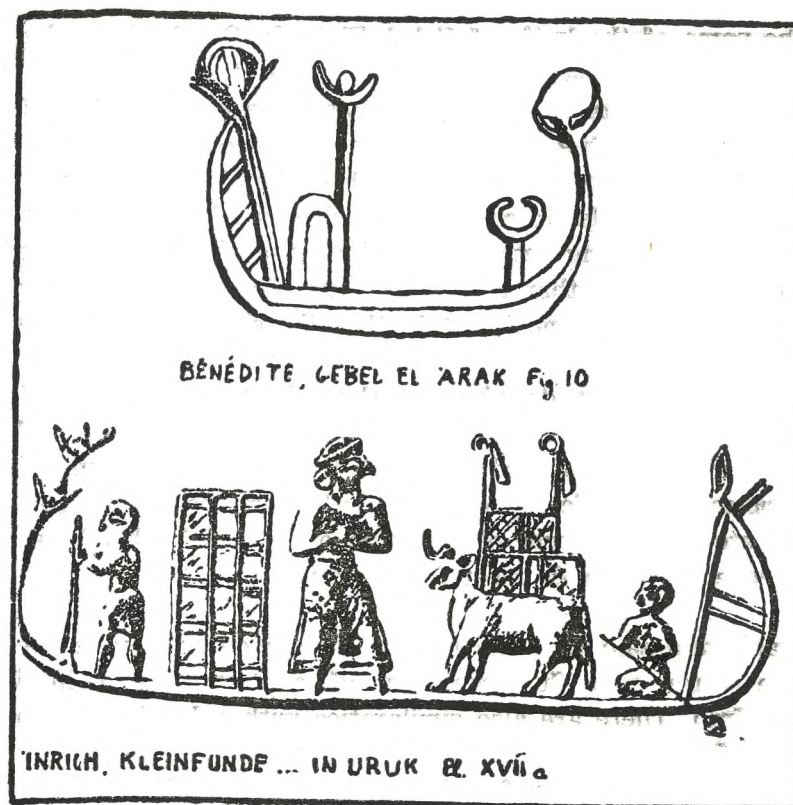 BÉNÉDITE, GEBEL EL ARAK Fig 10
INRICH, KLEINFUNDE ... IN URUK XVII a